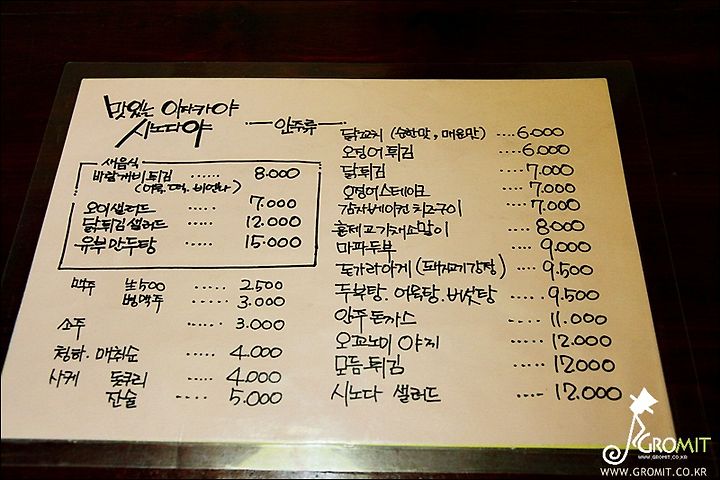 맛있는 이자카야
시노다야
안주류
새음식
바람개비튀김 ...... 8.000
오이샐러드 ..... 7.000
닭튀김샐러드 ..... 12.000
유부만두탕 ..... 15.000
맥주 生500 ..... 2.500
병맥주 ..... 3.000
소주 ..... 3.000
청하. 매취순 ..... 4.000
사케 돗쿠리 ..... 4.000
잔술 ..... 5.000
닭꼬치 (순한맛, 매운맛) .... 6.000
오징어튀김 .... 6.000
닭튀김 .... 7.000
오징어스테이크 .... 7.000
감자베이컨치즈구이 .... 7.000
훈제고기채소말이 .... 8.000
마파두부 .... 9.000
돈가라아게 (돼지고기강정) .... 9.500
두부탕. 어묵탕. 버섯탕 ..... 9.500
안주돈까스 ..... 11.000
오꼬노미 야끼 ..... 12.000
모듬튀김 ..... 12.000
시노다 샐러드 .... 12.000
GROMIT
WWW.GROMIT.CO.KR
WWW.GROMIT.CO.KR